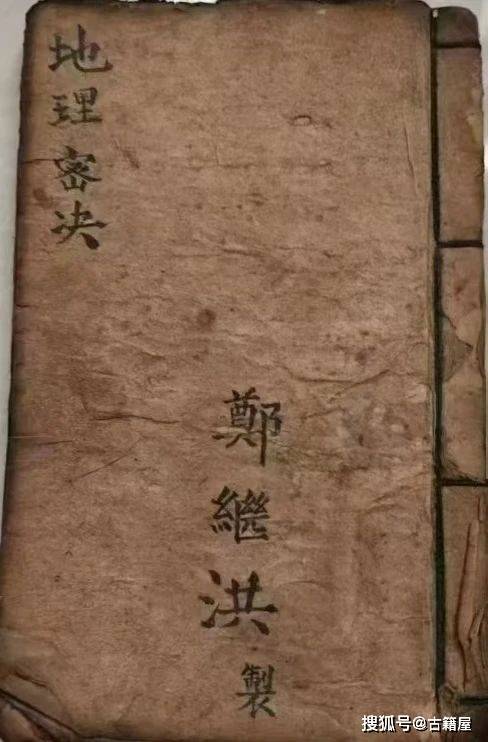 地理密决
鄭繼洪製
搜狐号@古籍屋